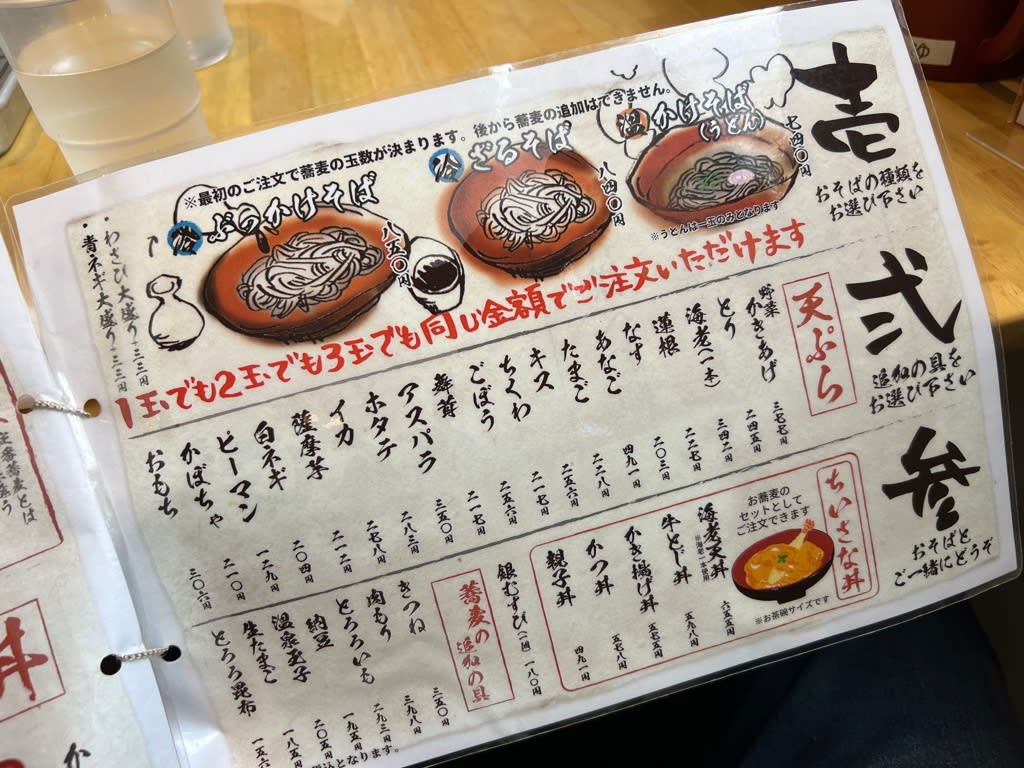 壱
おそばの種類を
お選び下さい
温 かけそば
(うどん)
七四〇円
※うどんは一玉のみとなります
冷 ざるそば
八四〇円
冷 ぶっかけそば
八五〇円
※最初のご注文で蕎麦の玉数が決まります。後から蕎麦の追加はできません。
・わさび大盛り+三三円
・青ネギ大盛り+三三円
1玉でも2玉でも3玉でも同じ金額でご注文いただけます
弐
追加の具を
お選び下さい
天ぷら
野菜かきあげ 三七七円
とり 二四五円
海老(一本) 三四二円
蓮根 二二七円
なす 二〇三円
あなご 四九一円
たまご 二二八円
キス 二五六円
ちくわ 二一七円
ごぼう 二五六円
舞茸 二一七円
アスパラ 三五〇円
ホタテ 二八三円
イカ 二七八円
薩摩芋 二一二円
白ネギ 二〇四円
ピーマン 一二九円
かぼちゃ 二一〇円
おもち 三〇六円
参
おそばと
ご一緒にどうぞ
ちいさな丼
お蕎麦の
セットとして
ご注文できます
※お茶碗サイズです
海老天丼 六五五円
※海老一本使用
牛とじ丼 五九八円
かき揚げ丼 五七五円
かつ丼 五七八円
親子丼 四九一円
銀むすび(一個) 一八〇円
蕎麦の追加の具
きつね 三五〇円
肉もり 三九八円
とろろいも 二九三円
納豆 一九五円
温泉玉子 二〇五円
生たまご 一八五円
とろろ昆布 一五六
となります。
丼
か
ゆ